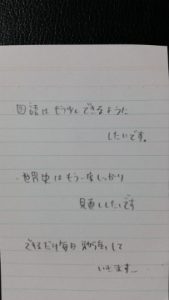 国語はもう少しできるように
したいです。
・世界史はもう一度しっかり
見直ししたいです
できるだけ毎日 勉強して
いきます…